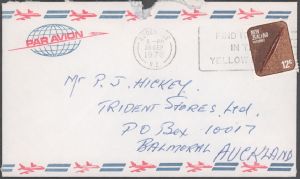 PAR AVION
1976
FIND
IN T
YELLOW
NEW ZEALAND
12c
Mr P.J. HICKEY.
TRIDENT STORES Ltd.
P.O BOX 10017
BALMORAL AUCKLAND